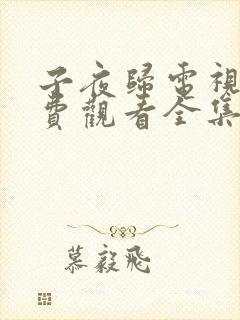 子夜歸電視
費觀看全集
慕毅飛